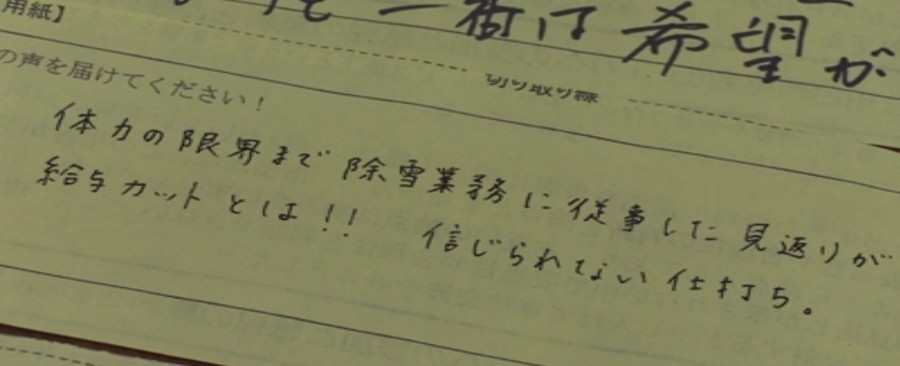 用紙】
一街は希望が
切り取り線
の声を届けてください！
体力の限界まで除雪業務に従事した見返りが
給与カットとは!! 信じられない仕打ち。